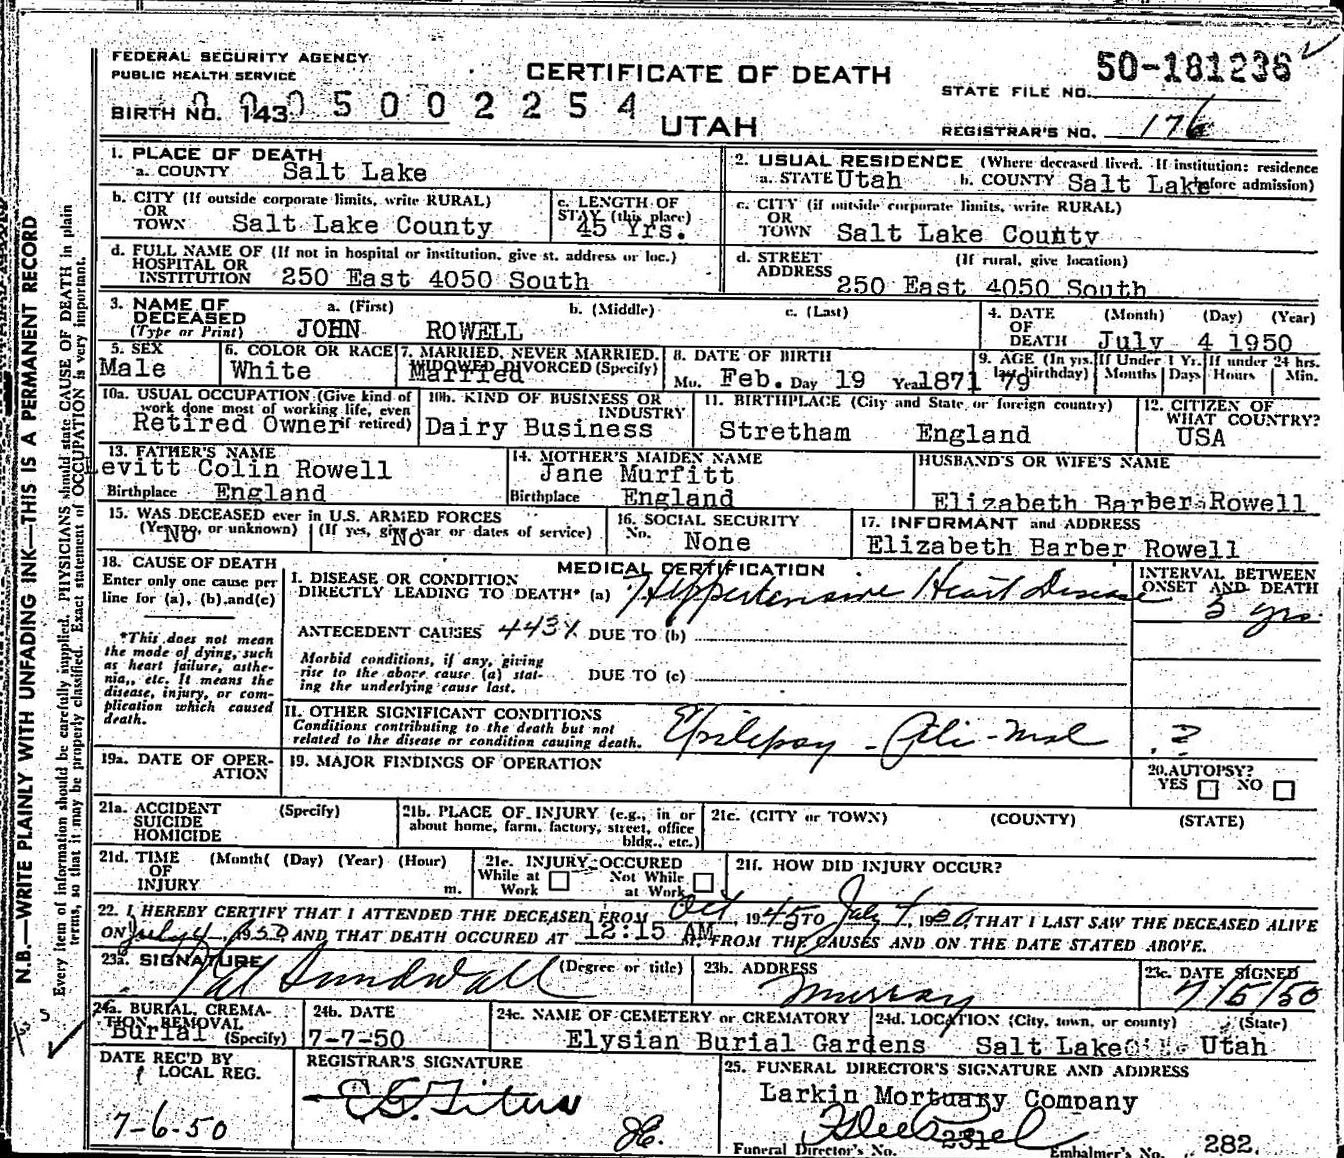 FEDERAL SECURITY AGENCY
PUBLIC HEALTH SERVICE
CERTIFICATE OF DEATH
50-181236
STATE FILE NO.
BIRTH NO. 143 0 0 0 5 0 0 2 2 5 4
UTAH
REGISTRAR'S NO. 176
1. PLACE OF DEATH
a. COUNTY Salt Lake
2. USUAL RESIDENCE (Where deceased lived. If institution: residence
a. STATE Utah b. COUNTY Salt Lake before admission)
b. CITY (If outside corporate limits, write RURAL)
OR
TOWN Salt Lake County
c. LENGTH OF
STAY (this place)
45 Yrs.
c. CITY (if outside corporate limits, write RURAL)
OR
TOWN Salt Lake County
d. FULL NAME OF (If not in hospital or institution, give st. address or loc.)
HOSPITAL OR
INSTITUTION 250 East 4050 South
d. STREET (If rural, give location)
ADDRESS
250 East 4050 South
3. NAME OF a. (First) b. (Middle) c. (Last)
DECEASED
(Type or Print) JOHN ROWELL
4. DATE (Month) (Day) (Year)
OF
DEATH July 4 1950
5. SEX
Male
6. COLOR OR RACE
White
7. MARRIED, NEVER MARRIED,
WIDOWED DIVORCED (Specify)
Married
8. DATE OF BIRTH
Mo. Feb. Day 19 Year 1871
9. AGE (In yrs. last birthday) 79
If Under 1 Yr. Months Days
If under 24 hrs. Hours Min.
10a. USUAL OCCUPATION (Give kind of
work done most of working life, even
Retired Owner if retired)
10b. KIND OF BUSINESS OR
INDUSTRY
Dairy Business
11. BIRTHPLACE (City and State or foreign country)
Stretham England
12. CITIZEN OF
WHAT COUNTRY?
USA
13. FATHER'S NAME
Levitt Colin Rowell
Birthplace England
14. MOTHER'S MAIDEN NAME
Jane Murfitt
Birthplace England
HUSBAND'S OR WIFE'S NAME
Elizabeth Barber Rowell
15. WAS DECEASED ever in U.S. ARMED FORCES
(Yes, no, or unknown) (If yes, give war or dates of service)
No No
16. SOCIAL SECURITY
No. None
17. INFORMANT and ADDRESS
Elizabeth Barber Rowell
18. CAUSE OF DEATH
Enter only one cause per
line for (a), (b), and (c)
*This does not mean
the mode of dying, such
as heart failure, asthe-
nia, etc. It means the
disease, injury, or com-
plication which caused
death.
MEDICAL CERTIFICATION
I. DISEASE OR CONDITION
DIRECTLY LEADING TO DEATH* (a) Hypertensive Heart Disease
INTERVAL BETWEEN
ONSET AND DEATH
3 yrs.
ANTECEDENT CAUSES 443X DUE TO (b)
Morbid conditions, if any, giving
rise to the above cause (a) stat-
ing the underlying cause last.
DUE TO (c)
II. OTHER SIGNIFICANT CONDITIONS
Conditions contributing to the death but not
related to the disease or condition causing death.
Epilepsy - Peti-mal ?
19a. DATE OF OPER-
ATION
19. MAJOR FINDINGS OF OPERATION
20. AUTOPSY?
YES NO
21a. ACCIDENT (Specify)
SUICIDE
HOMICIDE
21b. PLACE OF INJURY (e.g., in or
about home, farm, factory, street, office
bldg., etc.)
21c. (CITY or TOWN) (COUNTY) (STATE)
21d. TIME (Month( (Day) (Year) (Hour)
OF
INJURY m.
21e. INJURY OCCURED
While at Not While
Work at Work
21f. HOW DID INJURY OCCUR?
22. I HEREBY CERTIFY THAT I ATTENDED THE DECEASED FROM Oct, 1945 TO July 4, 1950, THAT I LAST SAW THE DECEASED ALIVE
ON July 4, 1950, AND THAT DEATH OCCURED AT 12:15 AM. FROM THE CAUSES AND ON THE DATE STATED ABOVE.
23a. SIGNATURE (Degree or title)
Val Sundwall
23b. ADDRESS
Murray
23c. DATE SIGNED
7/5/50
24a. BURIAL, CREMA-
TION, REMOVAL
Burial (Specify)
24b. DATE
7-7-50
24c. NAME OF CEMETERY or CREMATORY
Elysian Burial Gardens
24d. LOCATION (City, town, or county) (State)
Salt Lake Utah
DATE REC'D BY
LOCAL REG.
7-6-50
REGISTRAR'S SIGNATURE
25. FUNERAL DIRECTOR'S SIGNATURE AND ADDRESS
Larkin Mortuary Company
Funeral Director's No. 231 Embalmer's No. 282
N.B.—WRITE PLAINLY WITH UNFADING INK—THIS IS A PERMANENT RECORD
Every item of information should be carefully supplied. PHYSICIANS should state CAUSE OF DEATH in plain
terms, so that it may be properly classified. Exact statement of OCCUPATION is very important.